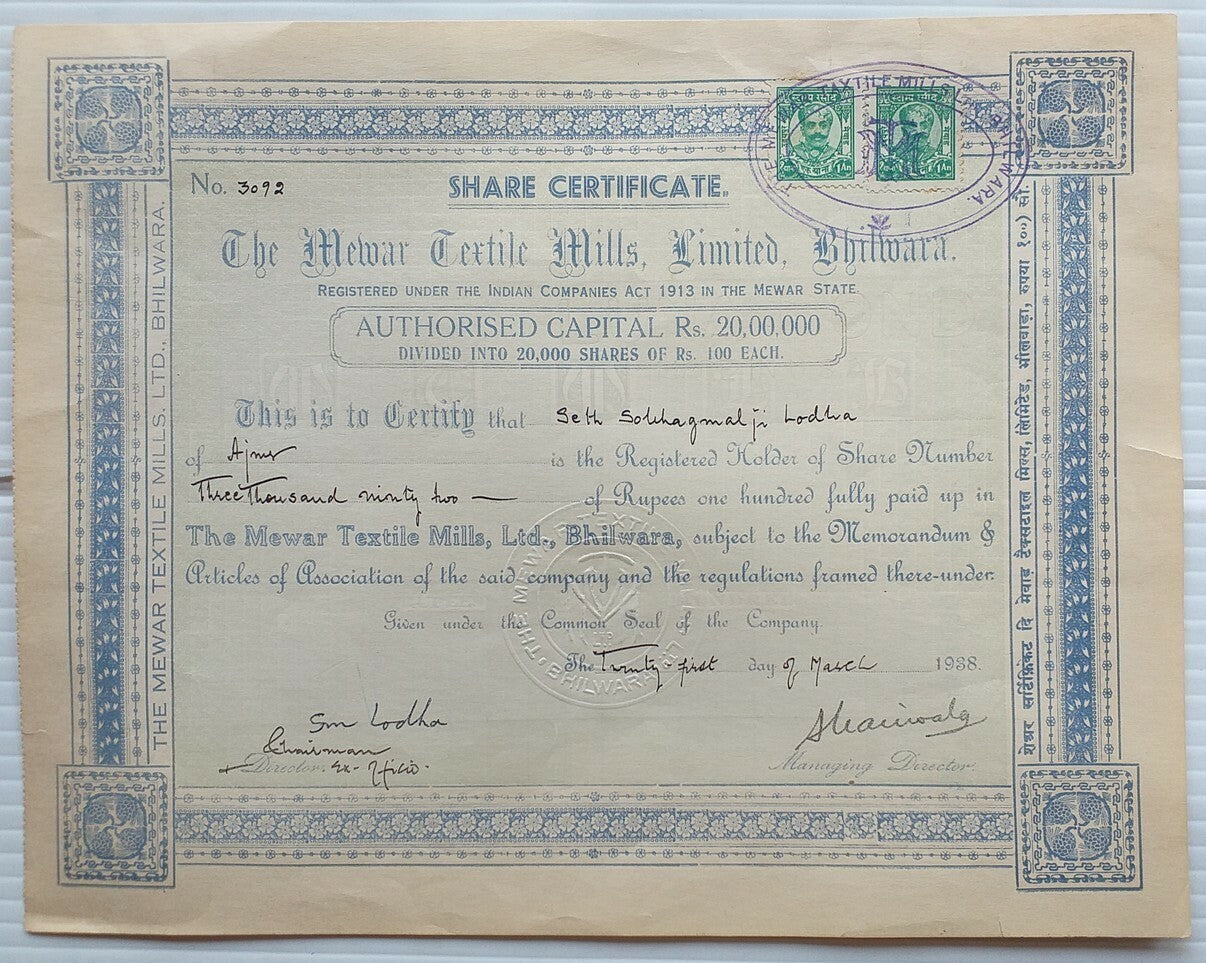 THE MEWAR TEXTILE MILLS LTD. BHILWARA.
No. 3092
SHARE CERTIFICATE.
The Mewar Textile Mills, Limited, Bhilwara.
REGISTERED UNDER THE INDIAN COMPANIES ACT 1913 IN THE MEWAR STATE.
AUTHORISED CAPITAL Rs. 20,00,000
DIVIDED INTO 20,000 SHARES OF Rs. 100 EACH.
This is to Certify that Seth Sobhagmalji Lodha
of Ajmer is the Registered Holder of Share Number
Three Thousand ninty two — of Rupees one hundred fully paid up in
The Mewar Textile Mills, Ltd., Bhilwara, subject to the Memorandum &
Articles of Association of the said company and the regulations framed there-under.
Given under the Common Seal of the Company.
The Twenty-first day of March 1938.
Sm Lodha
Chairman
Director. Ex-officio.
Managing Director.
THE MEWAR TEXTILE MILLS, LTD., BHILWARA.
शेअर सर्टिफ़िकेट दि मेवाड़ टैक्सटाइल मिल्स, लिमिटेड, भीलवाड़ा, रुपया १००) सौ
THE MEWAR TEXTILE BHILWARA